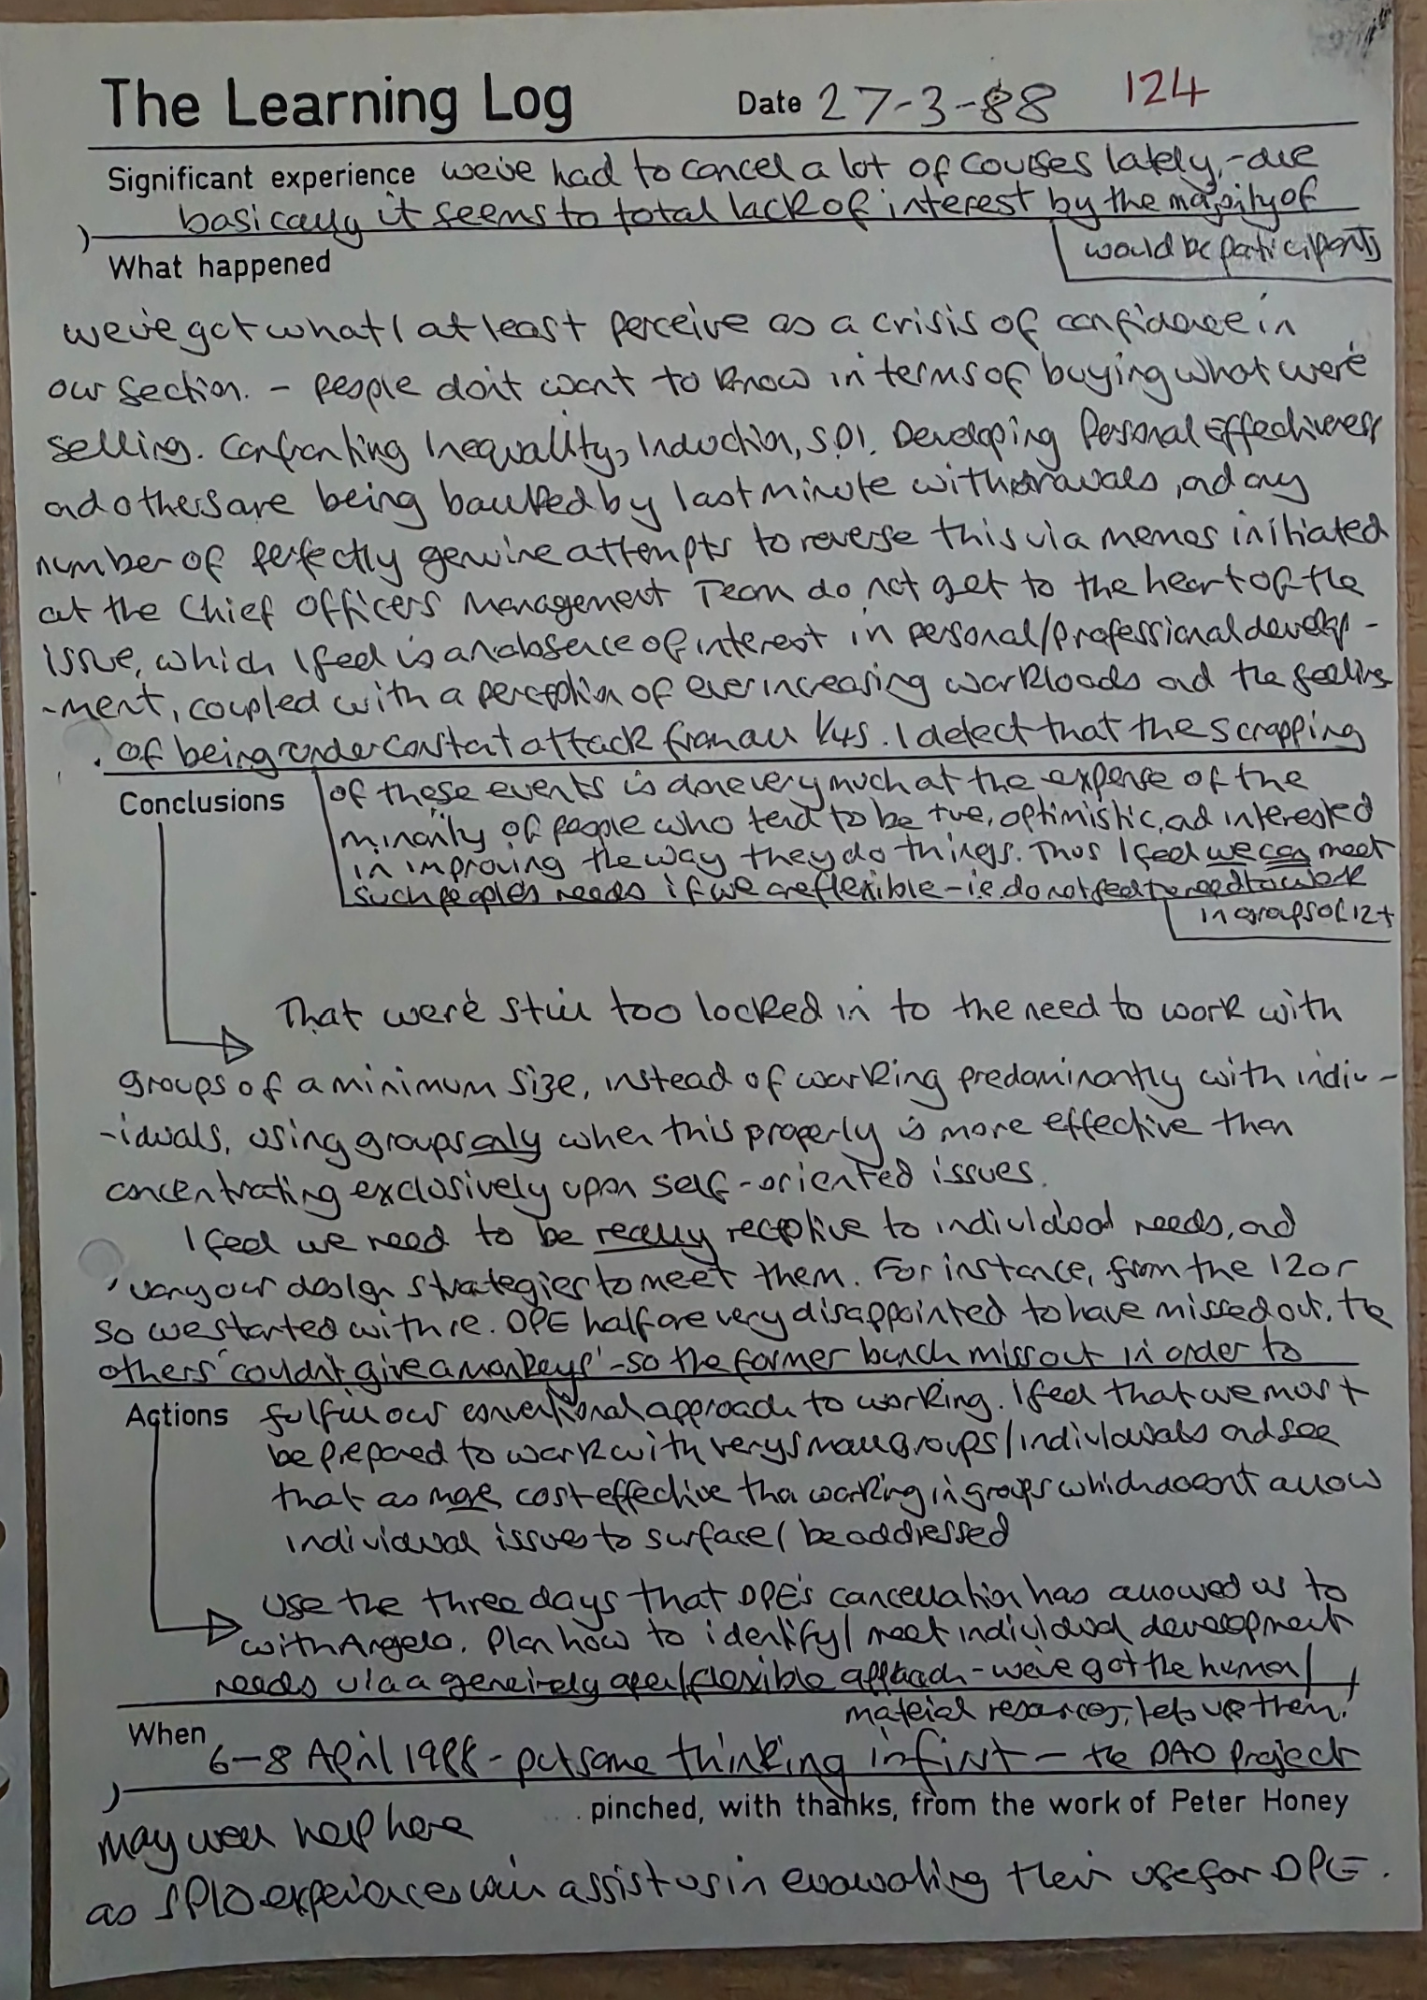 The Learning Log Date 27-3-88 124
Significant experience we've had to cancel a lot of courses lately, - due
basically it seems to total lack of interest by the majority of
would be participants
What happened
we've got what I at least perceive as a crisis of confidence in
our section. - people don't want to know in terms of buying what we're
selling. Confronting Inequality, Induction, S.D!, Developing Personal Effectiveness
and others are being baulked by last minute withdrawals, and any
number of perfectly genuine attempts to reverse this via memos initiated
at the Chief Officers Management Team do not get to the heart of the
issue, which I feel is an absence of interest in personal/professional develop-
-ment, coupled with a perception of ever increasing workloads and the feeling
of being under constant attack from all 1/4s. I detect that the scrapping
Conclusions of these events is done very much at the expense of the
minority of people who tend to be +ve, optimistic, and interested
in improving the way they do things. Thus I feel we can meet
such people's needs if we are flexible - i.e. do not feel the need to work
in groups of 12+
That we're still too locked in to the need to work with
groups of a minimum size, instead of working predominantly with indiv-
-iduals, using groups only when this properly is more effective than
concentrating exclusively upon self-oriented issues.
I feel we need to be really receptive to individual needs, and
vary our design strategies to meet them. For instance, from the 12 or
so we started with re. DPE half are very disappointed to have missed out, the
others 'couldn't give a monkeys' - so the former bunch miss out in order to
Actions fulfill our conventional approach to working. I feel that we must
be prepared to work with very small groups/individuals and see
that as more cost-effective than working in groups which doesn't allow
individual issues to surface/be addressed
Use the three days that DPE's cancellation has allowed us to
with Angela. Plan how to identify/meet individual development
needs via a genuinely open/flexible approach - we've got the human/
material resources, lets use them!
When 6-8 April 1988 - put some thinking in first - the DAO project
pinched, with thanks, from the work of Peter Honey
may well help here
as experiences will assist us in evaluating their use for DPE.